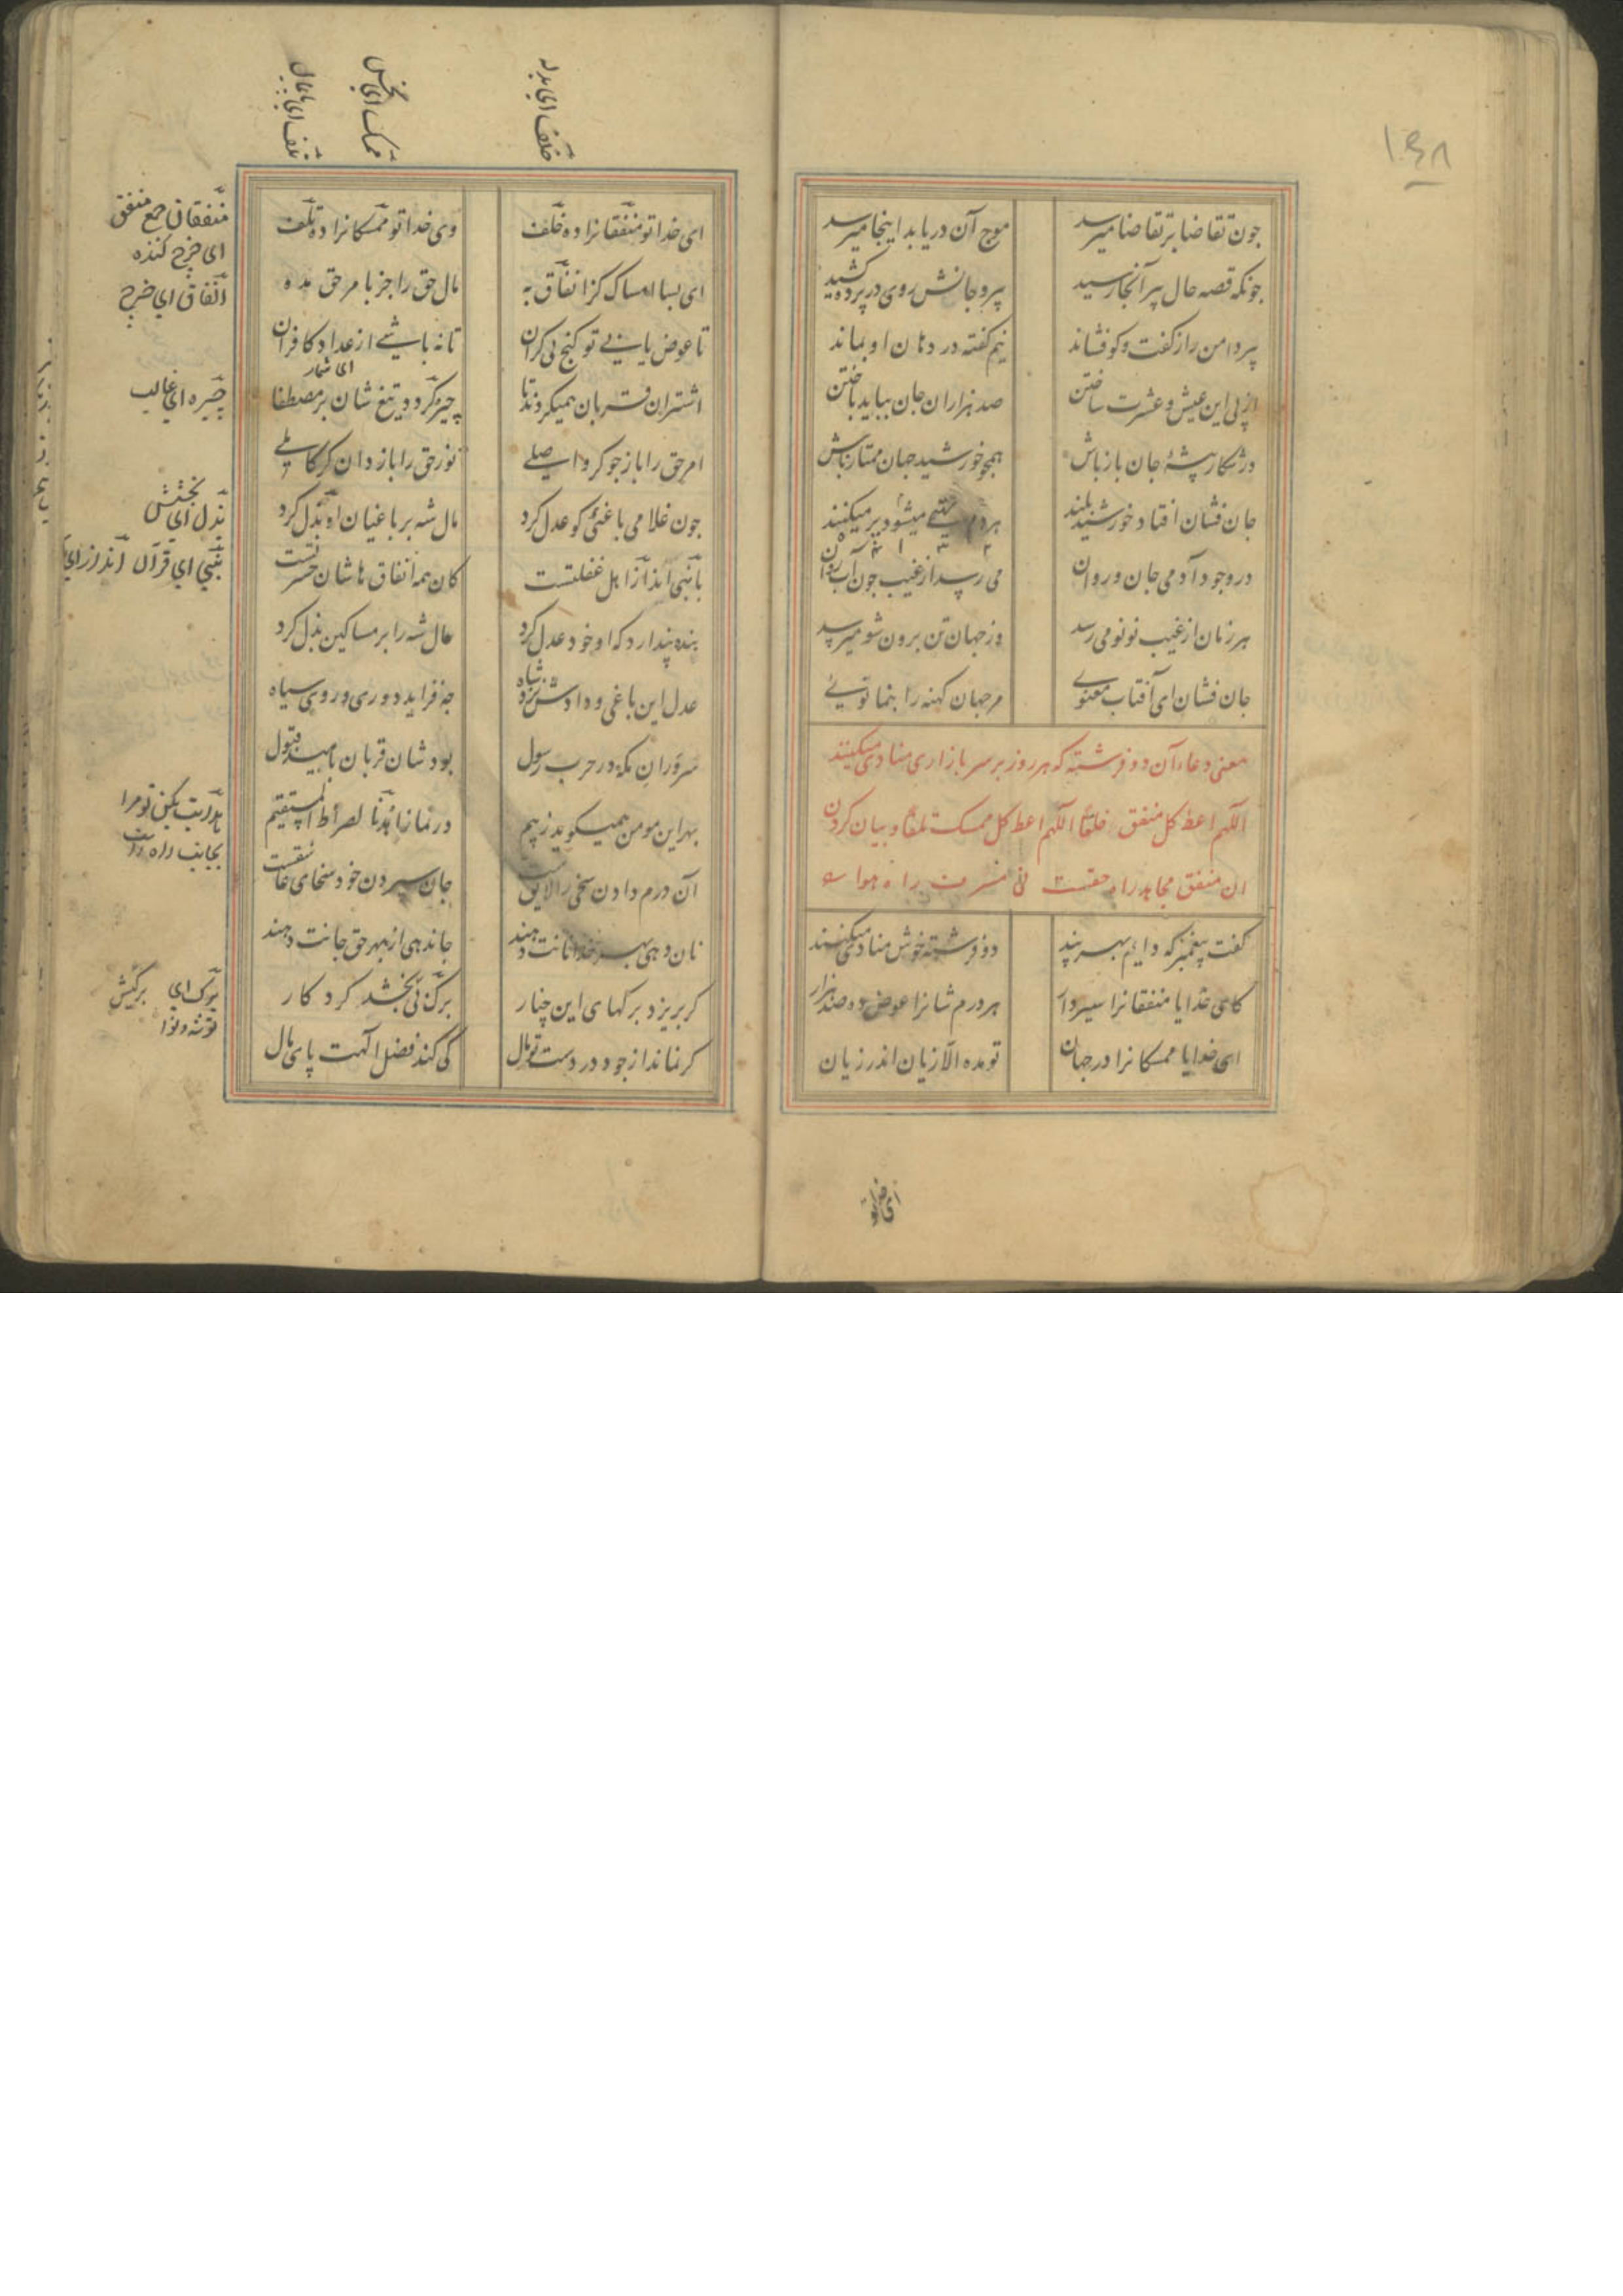 ١٤٨
چون تقاضا بر تقاضا میرسد
موج آن دریا بد اینجا میرسد
چونکه قصه حال پیر آنجا رسید
پیر و جانش روی در پرده کشید
پیر دامن را ز گفت و کو فشاند
نیم کفته در دهان او بماند
از پی این عیش و عشرت ساختن
صد هزاران جان بباید باختن
در شکار پیشهٔ جان باز باش
همچو خورشید جهان ممتاز باش
جان فشان افتاد خورشید بلند
هر دم تهی میشود پر میکنند
در وجود آدمی جان و روان
می رسد از غیب چون آب روان
هر زمان از غیب نو نو می رسد
وز جهان تن برون شو میرسد
جان فشان ای آفتاب معنوی
مر جهان کهنه را بنما نوی
معنی دعاء آن دو فرشته که هر روز بر سر بازاری منادی میکنند
اللهم اعط کل منفق خلفا اللهم اعط کل ممسک تلفا و بیان کردن
ان منفق مجاهد راه حقست نی مسرف راه هوا
کفت پیغمبر که دایم بهر پند
دو فرشته خوش منادی میکنند
کای خدایا منفقانرا سیر دار
هر درم شانرا عوض ده صد هزار
ای خدایا ممسکانرا در جهان
تو مده الا زیان اندر زیان
ای خدا
خلف ای بدله
ممسک ای بخیل
تلف ای
ای خدا تو منفقانرا ده خلف
وی خدا تو ممسکانرا ده تلف
منفقان جمع منفق
ای خرج کننده
انفاق ای خرج
ای بسا امساک کز انفاق به
مال حق را جز بامر حق مده
تا عوض یابی تو کنج بی کران
تا نه باشی از عداد کافران
ای شمار
اشتران قربان همیکردند تا
چیره کردد تیغ شان بر مصطفا
چیره ای غالب
امر حق را باز جو کر واصلی
نور حق را باز دان کر کاملی
چون غلامی باغئی کو عدل کرد
مال شه بر باغیان او بذل کرد
بذل ای بخشش
با نبی انذار اهل غفلتست
کان همه انفاق هاشان حسرتست
نبی ای قرآن انذار ای
بنده پندارد که او خود عدل کرد
مال شه را بر مساکین بذل کرد
عدل این باغی و دادش نزد شاه
چه فزاید دوری و روی سیاه
سروران مکه در حرب رسول
بود شان قربان بامید قبول
بهر این مومن همیکوید ز بیم
در نماز اهدنا الصراط المستقیم
هدایت بکن تو مرا
بجانب راه راست
آن درم دادن سخی را لایق است
جان سپردن خود سخای عاشقست
نان دهی بهر خدا نانت دهند
جان دهی از بهر حق جانت دهند
کر بریزد برکهای این چنار
برک بی برکیش بخشد کردکار
برک ای
توشه و نوا
کر نماند از جود در دست تو مال
کی کند فضل الهت پای مال